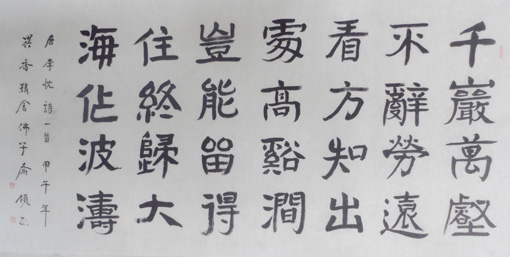 千巖萬壑
不辭勞遠
看方知出
處高谿澗
豈能留得
住終歸大
海作波濤
唐李忱詩一首 甲午年
香精舍佛子